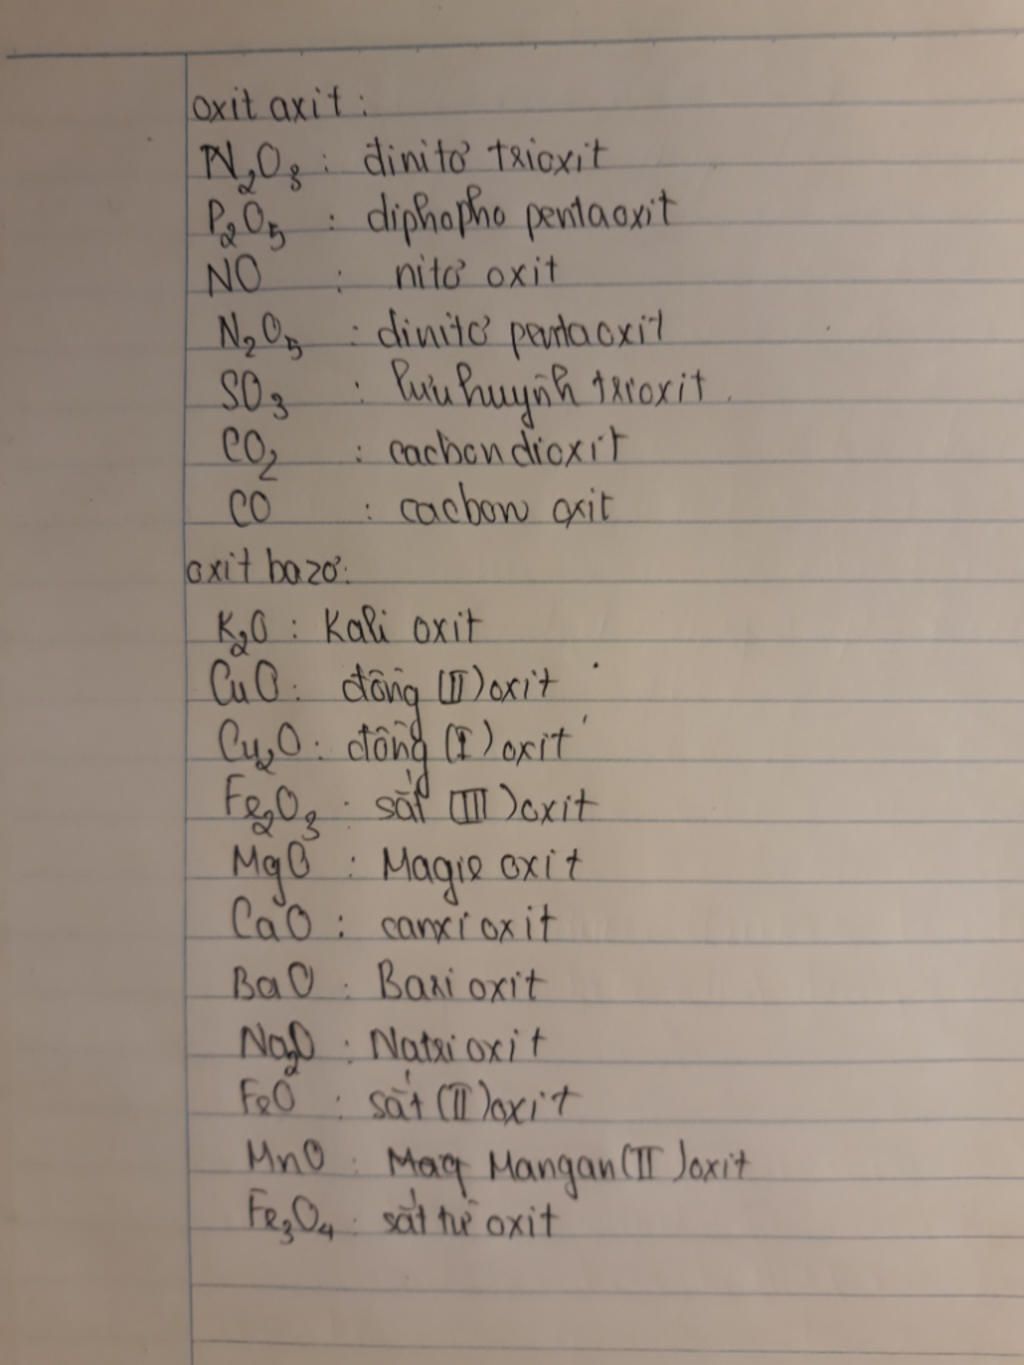 oxit axit:
N₂O₃ : đinitơ trioxit
P₂O₅ : điphopho pentaoxit
NO : nitơ oxit
N₂O₅ : đinitơ pentaoxit
SO₃ : lưu huỳnh trioxit
CO₂ : cacbon đioxit
CO : cacbon oxit
oxit bazơ:
K₂O : Kali oxit
CuO : đồng (II) oxit
Cu₂O : đồng (I) oxit
Fe₂O₃ : sắt (III) oxit
MgO : Magie oxit
CaO : canxi oxit
BaO : Bari oxit
Na₂O : Natri oxit
FeO : sắt (II) oxit
MnO : Mangan (II) oxit
Fe₃O₄ : sắt từ oxit